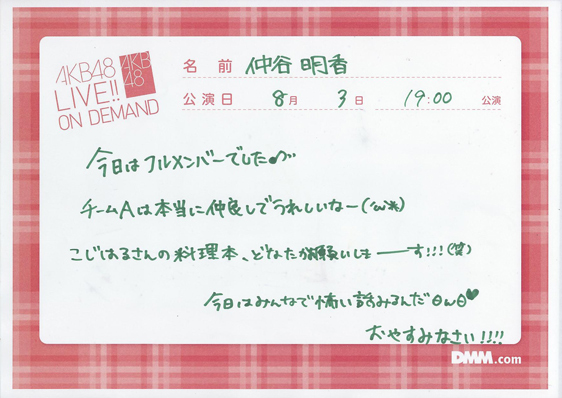 AKB48
LIVE!!
ON DEMAND
AKB
48
名前 仲谷明香
公演日 8月 3日 19:00 公演
今日はフルメンバーでした♪
チームAは本当に仲良しでうれしいなー(´ω`*)
こじはるさんの料理本、どなたか願いしまーーす!!!(笑)
今日はみんなで怖い話みるんだθωθ♥
おやすみなさい!!!!
DMM.com